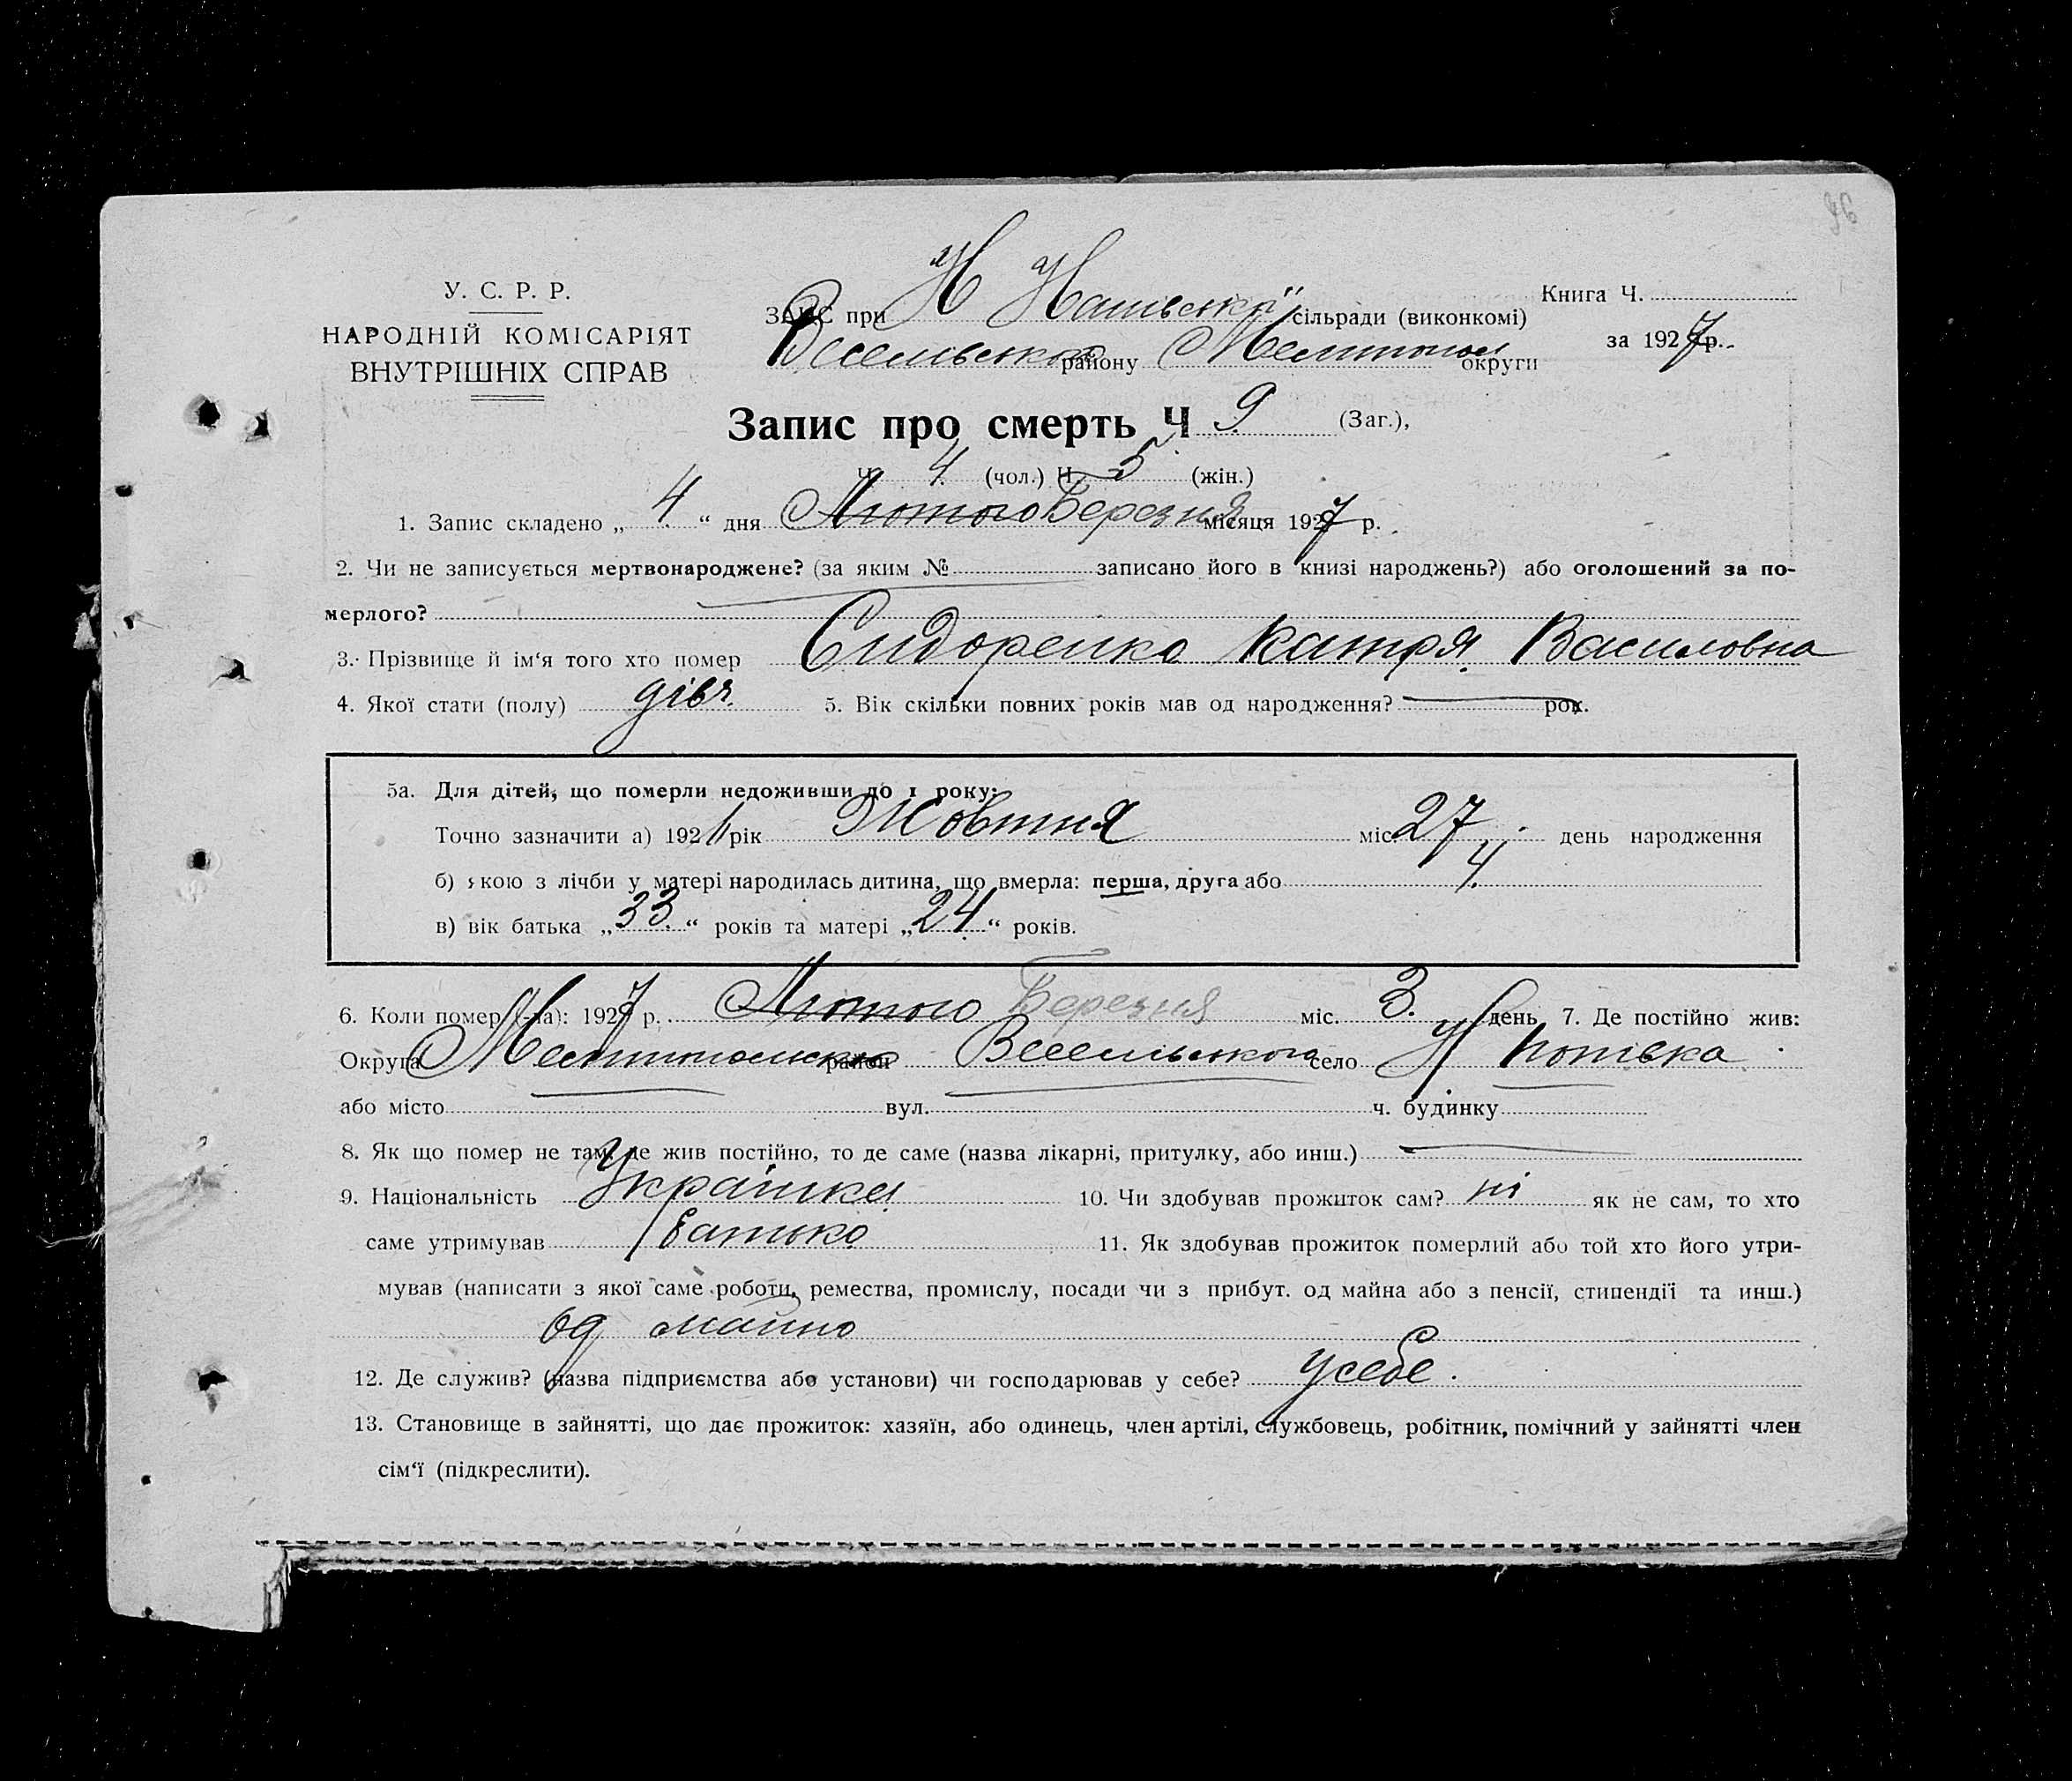 96
У. С. Р. Р.
НАРОДНІЙ КОМІСАРІЯТ
ВНУТРІШНІХ СПРАВ
ЗАПИС при Н сільради (виконкомі)
Весельського району Мелітопол округи
Книга Ч.
за 1927 р.
Запис про смерть Ч 9 (Заг.),
Ч. 4 (чол.) Ч. 5 (жін.)
1. Запис складено „ 4 “ дня Лютого Березня місяця 1927 р.
2. Чи не записується мертвонароджене? (за яким № записано його в книзі народжень?) або оголошений за по-
мерлого?
3. Прізвище й ім‘я того хто помер Сидоренко Катря Василовна
4. Якої стати (полу) дівч. 5. Вік скільки повних років мав од народження? рок.
5а. Для дітей, що померли недоживши до 1 року:
Точно зазначити а) 1926 рік Жовтня міс. 27 день народження
б) якою з лічби у матері народилась дитина, що вмерла: перша, друга або 4.
в) вік батька „ 33. “ років та матері „ 24. “ років.
6. Коли помер (-ла): 1927 р. Лютого Березня міс. 3. день 7. Де постійно жив:
Округа Мелітопольсько район Весельського село
або місто вул. ч. будинку
8. Як що помер не там, де жив постійно, то де саме (назва лікарні, притулку, або инш.)
9. Національність Українка 10. Чи здобував прожиток сам? ні як не сам, то хто
саме утримував батько 11. Як здобував прожиток померлий або той хто його утри-
мував (написати з якої саме роботи, ремества, промислу, посади чи з прибут. од майна або з пенсії, стипендії та инш.)
од майно
12. Де служив? (назва підприємства або установи) чи господарював у себе? у себе.
13. Становище в зайнятті, що дає прожиток: хазяїн, або одинець, член артілі, службовець, робітник, помічний у зайнятті член
сім‘ї (підкреслити).